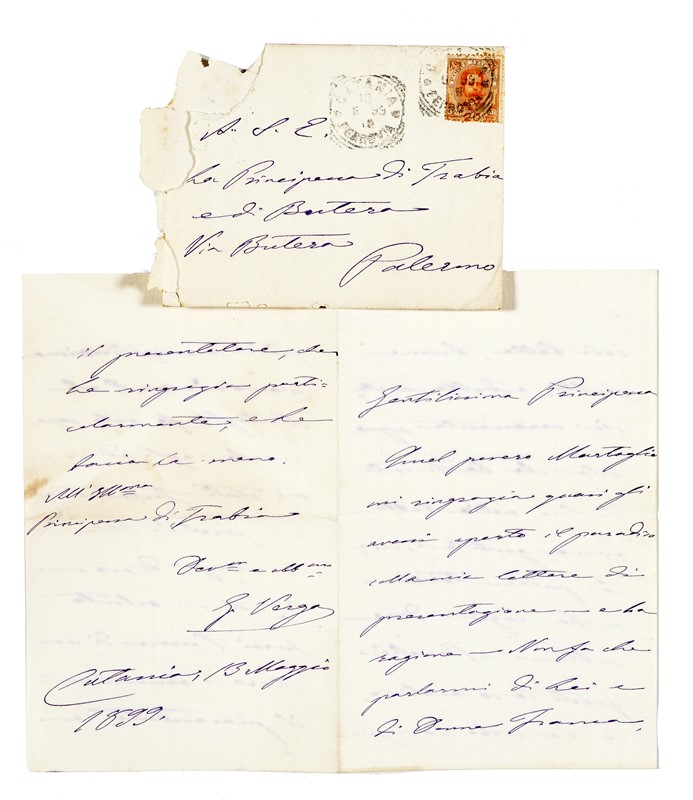 A. S. E.
La Principessa di Trabia
e di Butera
Via Butera
Palermo
CATANIA
13
5 99
FERROVIA
Gentilissima Principessa
Quel povero Martoglio
mi ringrazia quasi gli
avessi aperto il paradiso
colla mia lettera di
presentazione — e ha
ragione — Non fa che
parlarmi di Lei e
di Donna Franca,
il presentatore, che
La ringrazia parti-
colarmente, e Le
bacia la mano.
All'Ill.ma
Principessa di Trabia
Dev.mo e obb.mo
G. Verga
Catania, 13 Maggio
1899.